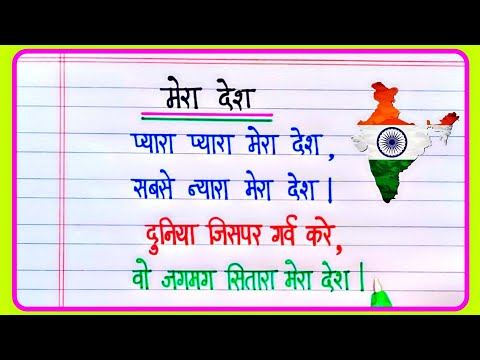 मेरा देश
प्यारा प्यारा मेरा देश,
सबसे न्यारा मेरा देश।
दुनिया जिसपर गर्व करे,
वो जगमग सितारा मेरा देश।